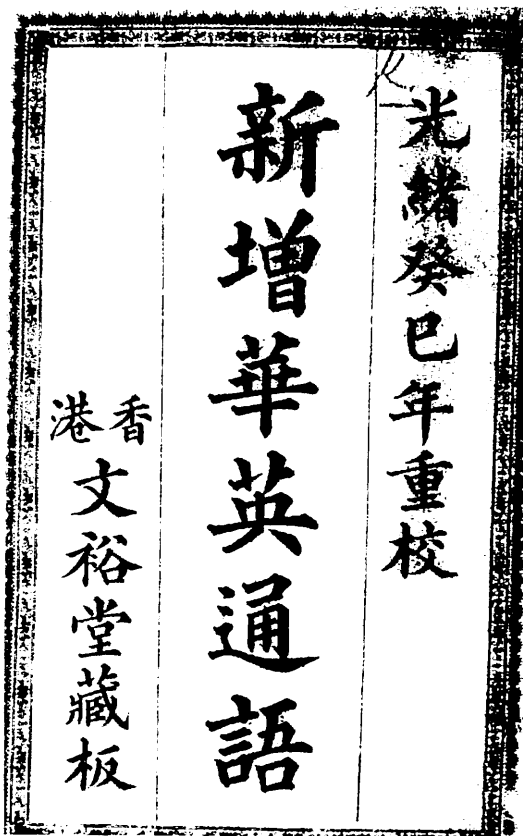 光緒癸巳年重校
新增華英通語
香港
文裕堂藏板